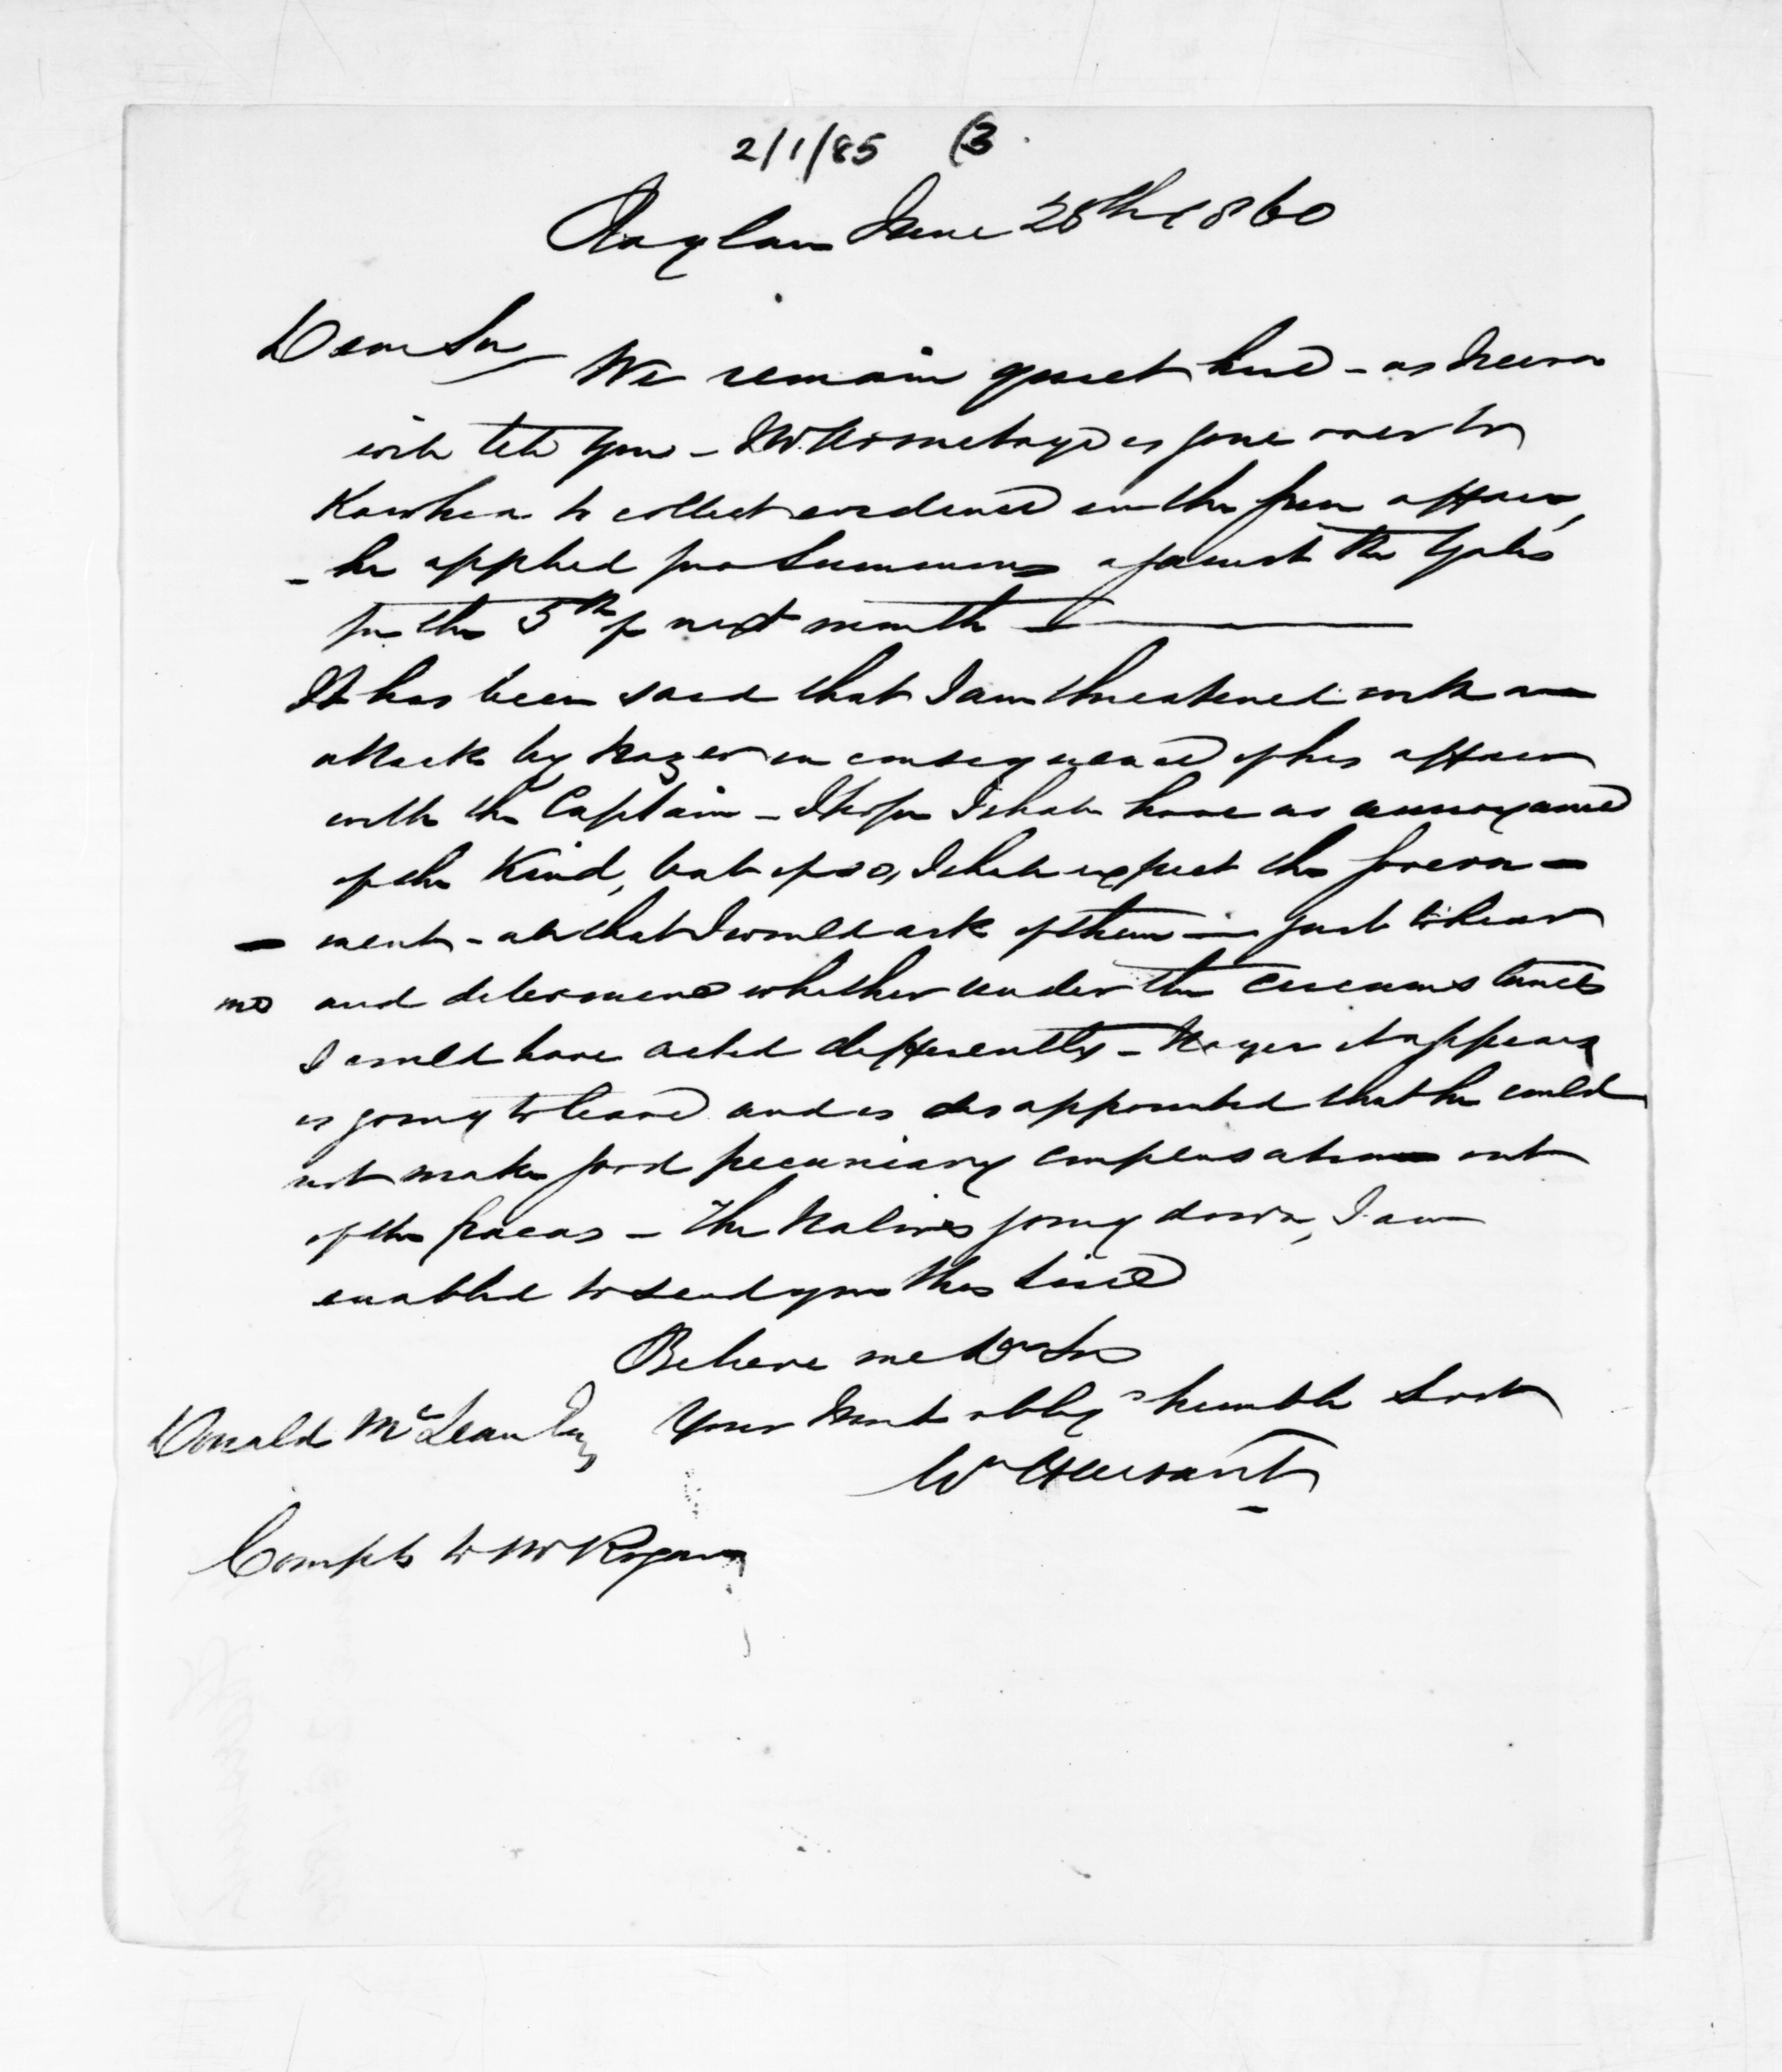 2/1/85 (3.
Raglan June 28th 1860
Dear Sir/ We remain quiet here - as
will tell you - Mr. Armitage is gone over to
Kawhia to collect evidence in the gun affair,
- he applied for Summons against the
for the 5th of next month -
It has been said that I am threatened with an
attack by in consequence of his affair
with the Captain - I hope I shall have no annoyance
of the Kind, but if so, I shall expect the Govern-
- ment - all that I would ask of them is just to hear
me and determine whether under the circumstances
I could have acted differently - it appears
is going to leave and is disappointed that he could
not make good pecuniary compensation out
of the fracas - The Natives going down, I am
enabled to send you this line
Believe me Dr Sir
Donald McLean Esq Your Most oblig humble Svt
Wm
Compts to Mr Rogan